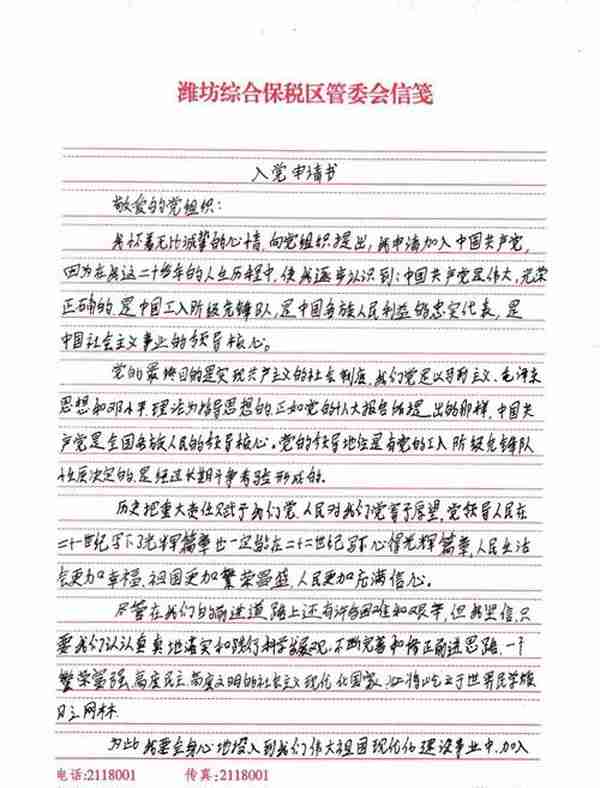 潍坊综合保税区管委会信笺
入党申请书
敬爱的党组织：
我怀着无比诚挚的心情，向党组织提出，我申请加入中国共产党，
因为在我这二十多年的人生历程中，使我逐步认识到：中国共产党是伟大，光荣
正确的，是中国工人阶级先锋队，是中国各族人民利益的忠实代表，是
中国社会主义事业的领导核心。
党的最终目的是实现共产主义的社会制度，我们党是以马列主义、毛泽东
思想和邓小平理论为指导思想的，正如党的八大报告所提出的那样，中国共
产党是全国各族人民的领导核心。党的领导地位是有党的工人阶级先锋队
性质决定的，是经过长期斗争考验形成的。
历史把重大责任赋于我们党，人民对我们党寄予厚望，党领导人民在
二十一世纪写下了光辉篇章也一定能在二十二世纪写下心得光辉篇章，人民生活
会更加幸福，祖国更加繁荣昌盛，人民更加充满信心。
尽管在我们的前进道路上还有许多困难和艰辛，但我坚信，只
要我们认认真真地落实和践行科学发展观，不断完善和修正前进思路，一个
繁荣富强、高度民主、高度文明的社会主义现代化国家，必将屹立于世界民学雄
日之网林
为此我要全身心地投入到我们伟大祖国现代化建设事业中，加入
电话:2118001 传真:2118001